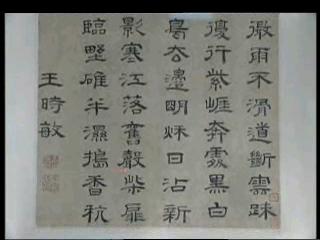 微雨不滑道斷雲踈
復行紫崖奔處黑白
鳥去邊明秌日沾新
影寒江落舊聲柴扉
臨野碓半濕搗香秔
王時敏